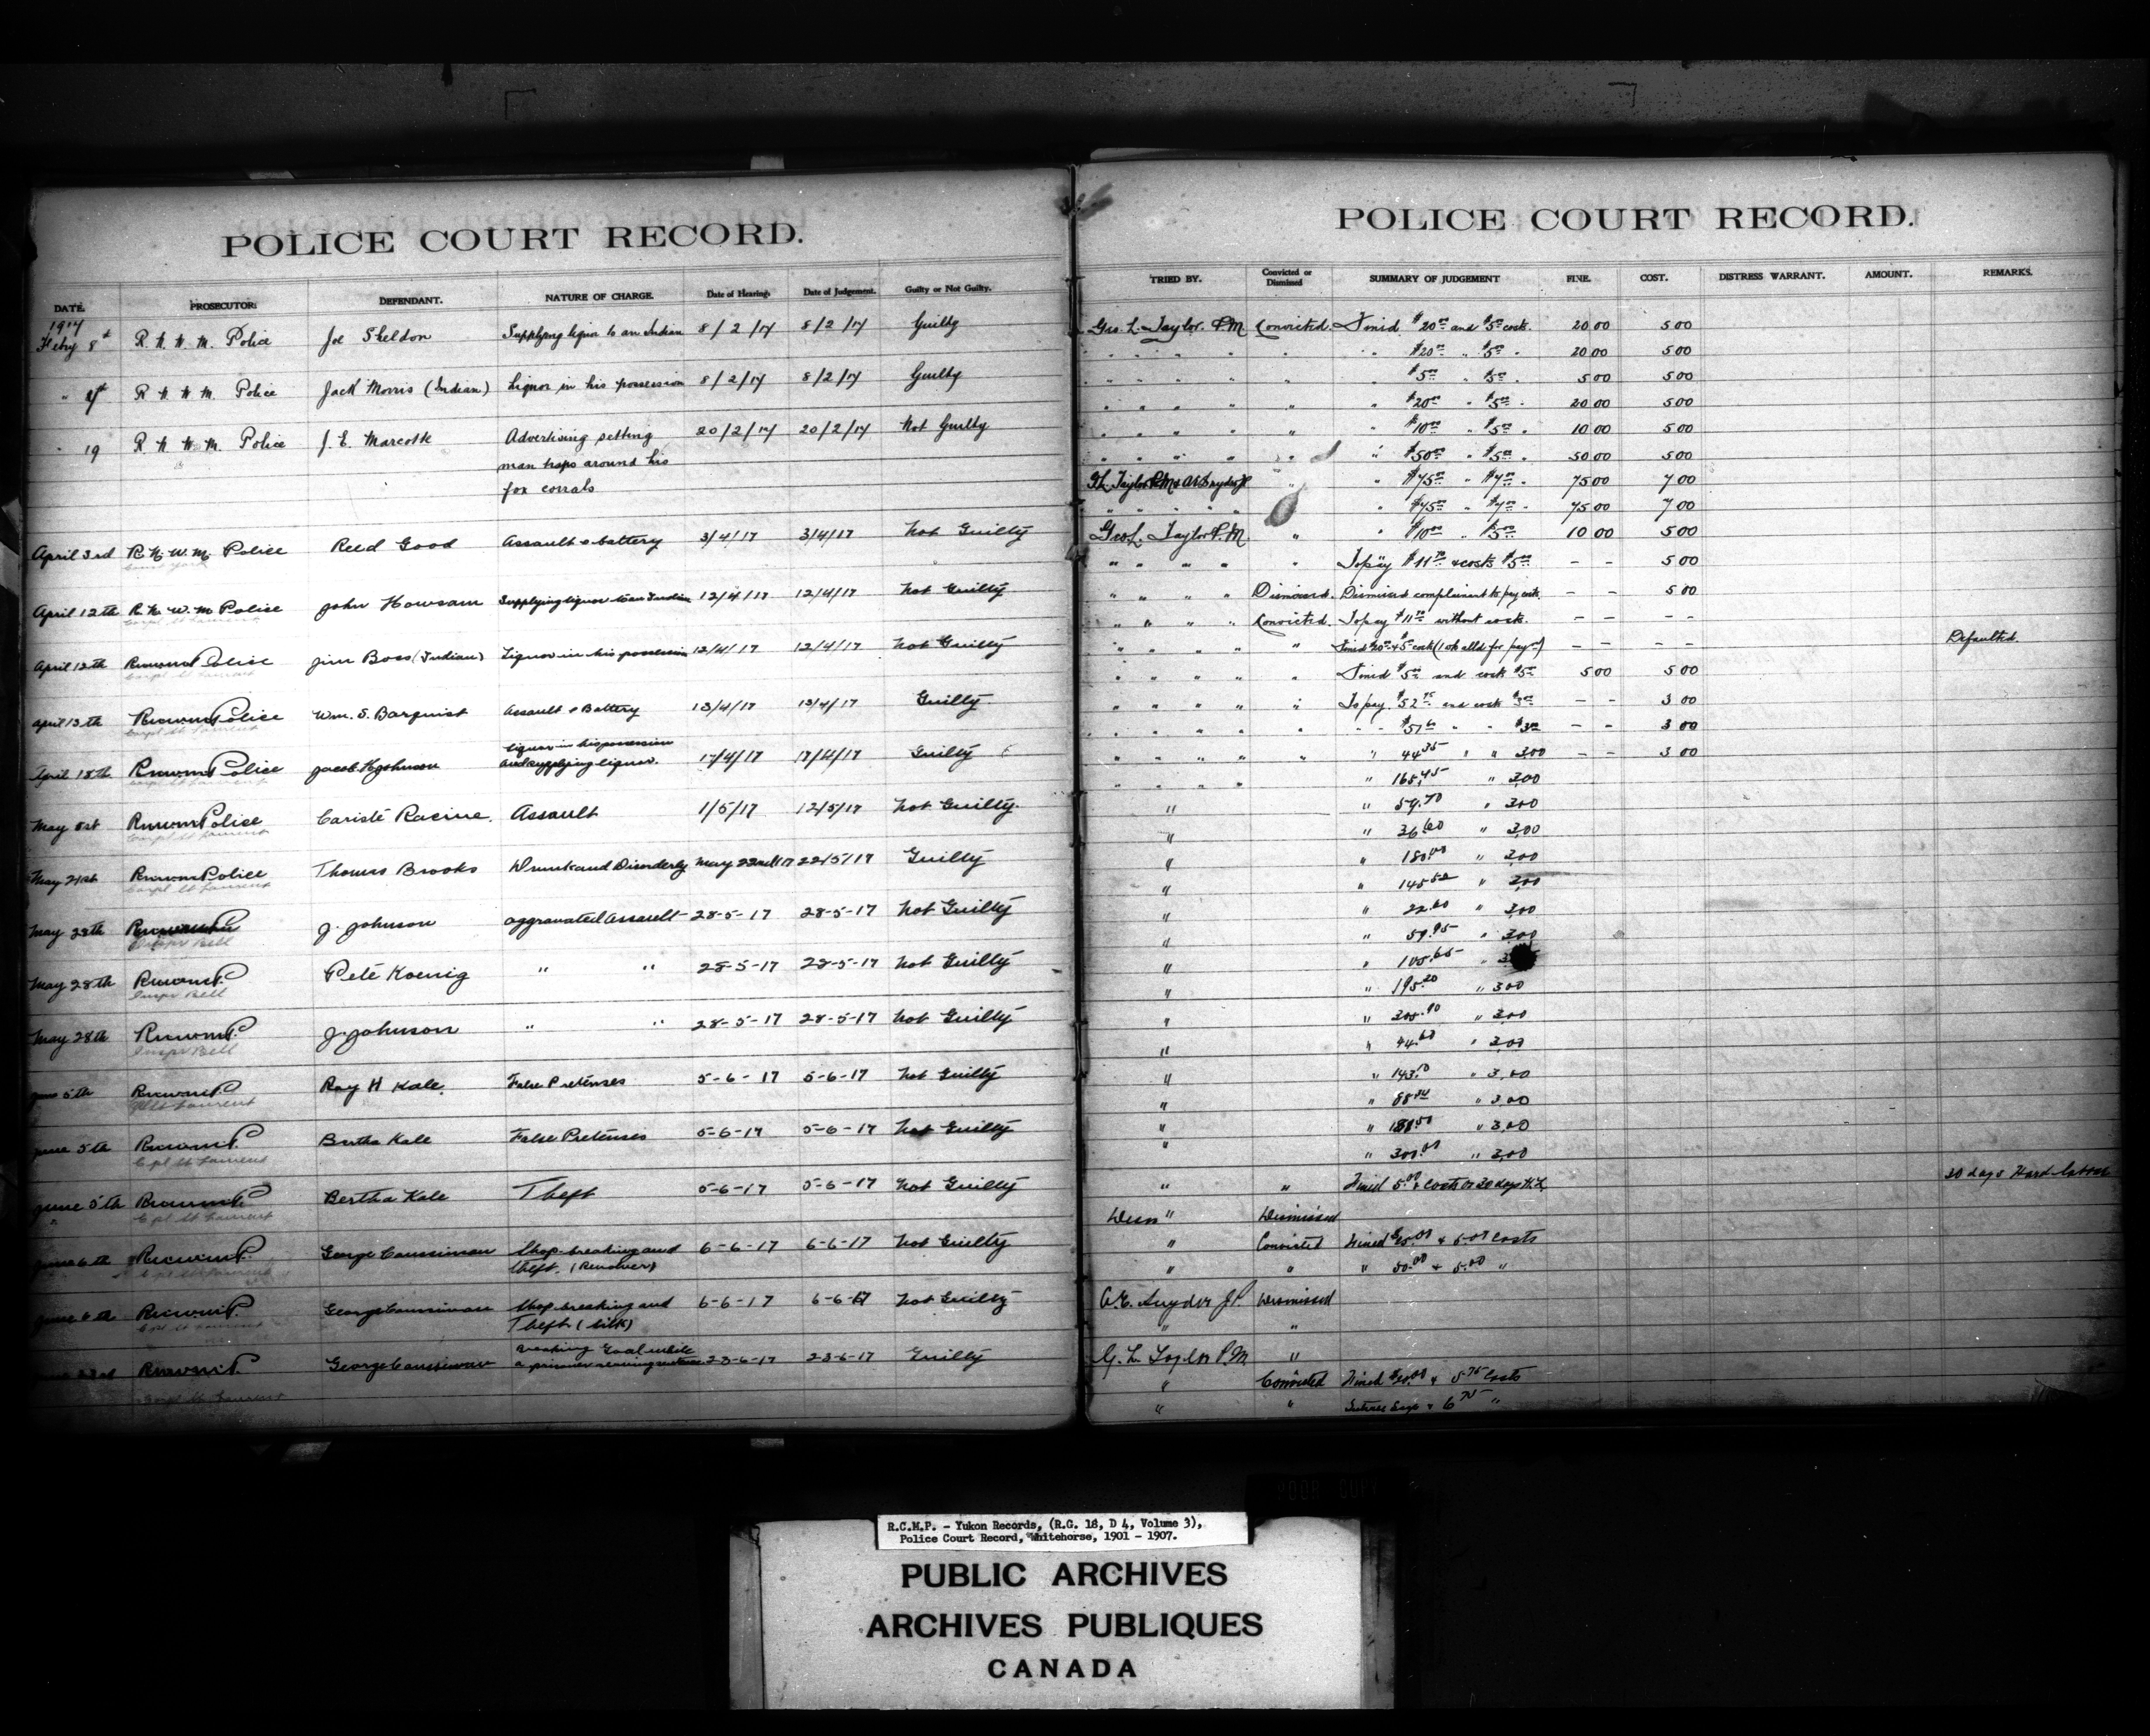 POLICE COURT RECORD.
DATE. PROSECUTOR. DEFENDANT. NATURE OF CHARGE. Date of Hearing. Date of Judgement. Guilty or Not Guilty.
1917
Feby 8th R. N. W. M. Police Joe Sheldon Supplying liquor to an Indian 8/2/17 8/2/17 Guilty
" R N W M. Police Jack Morris (Indian) Liquor in his possession 8/2/17 8/2/17 Guilty
" 19 R N W M. Police J. E. Marcotte Advertising setting 20/2/17 20/2/17 Not Guilty
man traps around his
fox corrals
April 3rd R. N. W. M. Police Reed Good Assault & battery 3/4/17 3/4/17 Not Guilty
April 12th R. N. W. M Police John Howsam Supplying liquor to an Indian 12/4/17 12/4/17 Not Guilty
Corpl St Laurent
April 12th RNWM Police Jim Boss (Indian) Liquor in his possession 12/4/17 12/4/17 Not Guilty
Corpl St Laurent
April 13th RNWM Police Wm. S. Barquist Assault & Battery 13/4/17 13/4/17 Guilty
Corpl St Laurent
liquor in his possession
April 18th RNWM Police Jacob Johnson and supplying liquor. 17/4/17 17/4/17 Guilty
Corpl St Laurent
May 1st RNWM Police Cariste Racine. Assault 1/5/17 12/5/17 Not Guilty.
Corpl St Laurent
May 21st RNWM Police Thomas Brooks Drunk and Disorderly May 22nd 17 22/5/17 Guilty
Corpl St Laurent
May 28th J. Johnson aggravated Assault 28-5-17 28-5-17 Not Guilty
Inspr Bell
May 28th RNWMP. Pete Koenig " " 28-5-17 28-5-17 Not Guilty
Inspr Bell
May 28th RNWMP. J. Johnson " " 28-5-17 28-5-17 Not Guilty
Inspr Bell
June 5th RNWMP. Roy H Kale. False Pretenses 5-6-17 5-6-17 Not Guilty
St Laurent
June 5th RNWMP. Bertha Kale False Pretenses 5-6-17 5-6-17 Not Guilty
Cpl St Laurent
June 5th RNWMP Bertha Kale Theft 5-6-17 5-6-17 Not Guilty
Cpl St Laurent
June 6th RNWMP. George Shop-breaking and 6-6-17 6-6-17 Not Guilty
Cpl St Laurent theft. (Revolver)
June 6th RNWMP. George Shop-breaking and 6-6-17 6-6-17 Not Guilty
Cpl St Laurent Theft (silk)
breaking Goal while
RNWMP. George a prisoner serving sentence 23-6-17 23-6-17 Guilty
Corpl St Laurent
POLICE COURT RECORD.
TRIED BY. Convicted or Dismissed SUMMARY OF JUDGEMENT FINE. COST. DISTRESS WARRANT. AMOUNT. REMARKS.
Geo. L. Taylor. P.M Convicted. Fined $20.00 and $5.00 costs. 20 00 5 00
" " " " " $20.00 " $5.00 " 20 00 5 00
" " " " " " $5.00 " $5.00 " 5 00 5 00
" " " " " " $20.00 " $5.00 " 20 00 5 00
" " " " " " $10.00 " $5.00 " 10 00 5 00
" " " " " " $50.00 " $5.00 " 50 00 5 00
G.L. Taylor P.M & A.E. Snyder J.P. " " $75.00 " $7.00 " 75 00 7 00
" " " " " $75.00 " $7.00 " 75 00 7 00
Geo L. Taylor P.M. " " $10.00 " $5.00 10 00 5 00
" " " " " To pay $11.70 & costs $5.00 - - 5 00
" " " " Dismissed. Dismissed complainent to pay costs. - - 5 00
" " " " Convicted. To pay without costs. - - - -
" " " " " Fined $20.00 & 5 costs (1 wk alld for paymt) - - - - Defaulted
" " " " " Fined $5.00 and costs $5.00 5 00 5 00
" " " " " To pay. $52.75 and costs $3.00 - - 3 00
" " " " - - " " $3.00 - - 3 00
" " " " " " 44.35 " " 3.00 - - 3 00
" " " " " 165.45 " 3.00
" " 59.70 " 3.00
" " 36.60 " 3.00
" " 180.00 " 3.00
" " 145.50 " 3.00
" " 22.60 " 3.00
" " 59.95 " 3.00
" " 105.65 "
" " 195.20 " 3.00
" " " 3.00
" " 44.60 " 3.00
" " 143.10 " 3.00
" " " 3.00
" " " 3.00
" " 300.00 " 3.00
" " Fined 5.00 & costs or 30 days H.L. 30 days Hard labour
" Dismissed
" Convicted Fined & 5.00 costs
" " " 50.00 & 5.00 "
A.E. Snyder J.P. Dismissed
" "
G. L. Taylor P.M "
" Convicted Fined $20.00 & 5.75 Costs
" " & 6.75 "
R.C.M.P. - Yukon Records, (R.G. 18, D 4, Volume 3),
Police Court Record, Whitehorse, 1901 - 1907.
PUBLIC ARCHIVES
ARCHIVES PUBLIQUES
CANADA